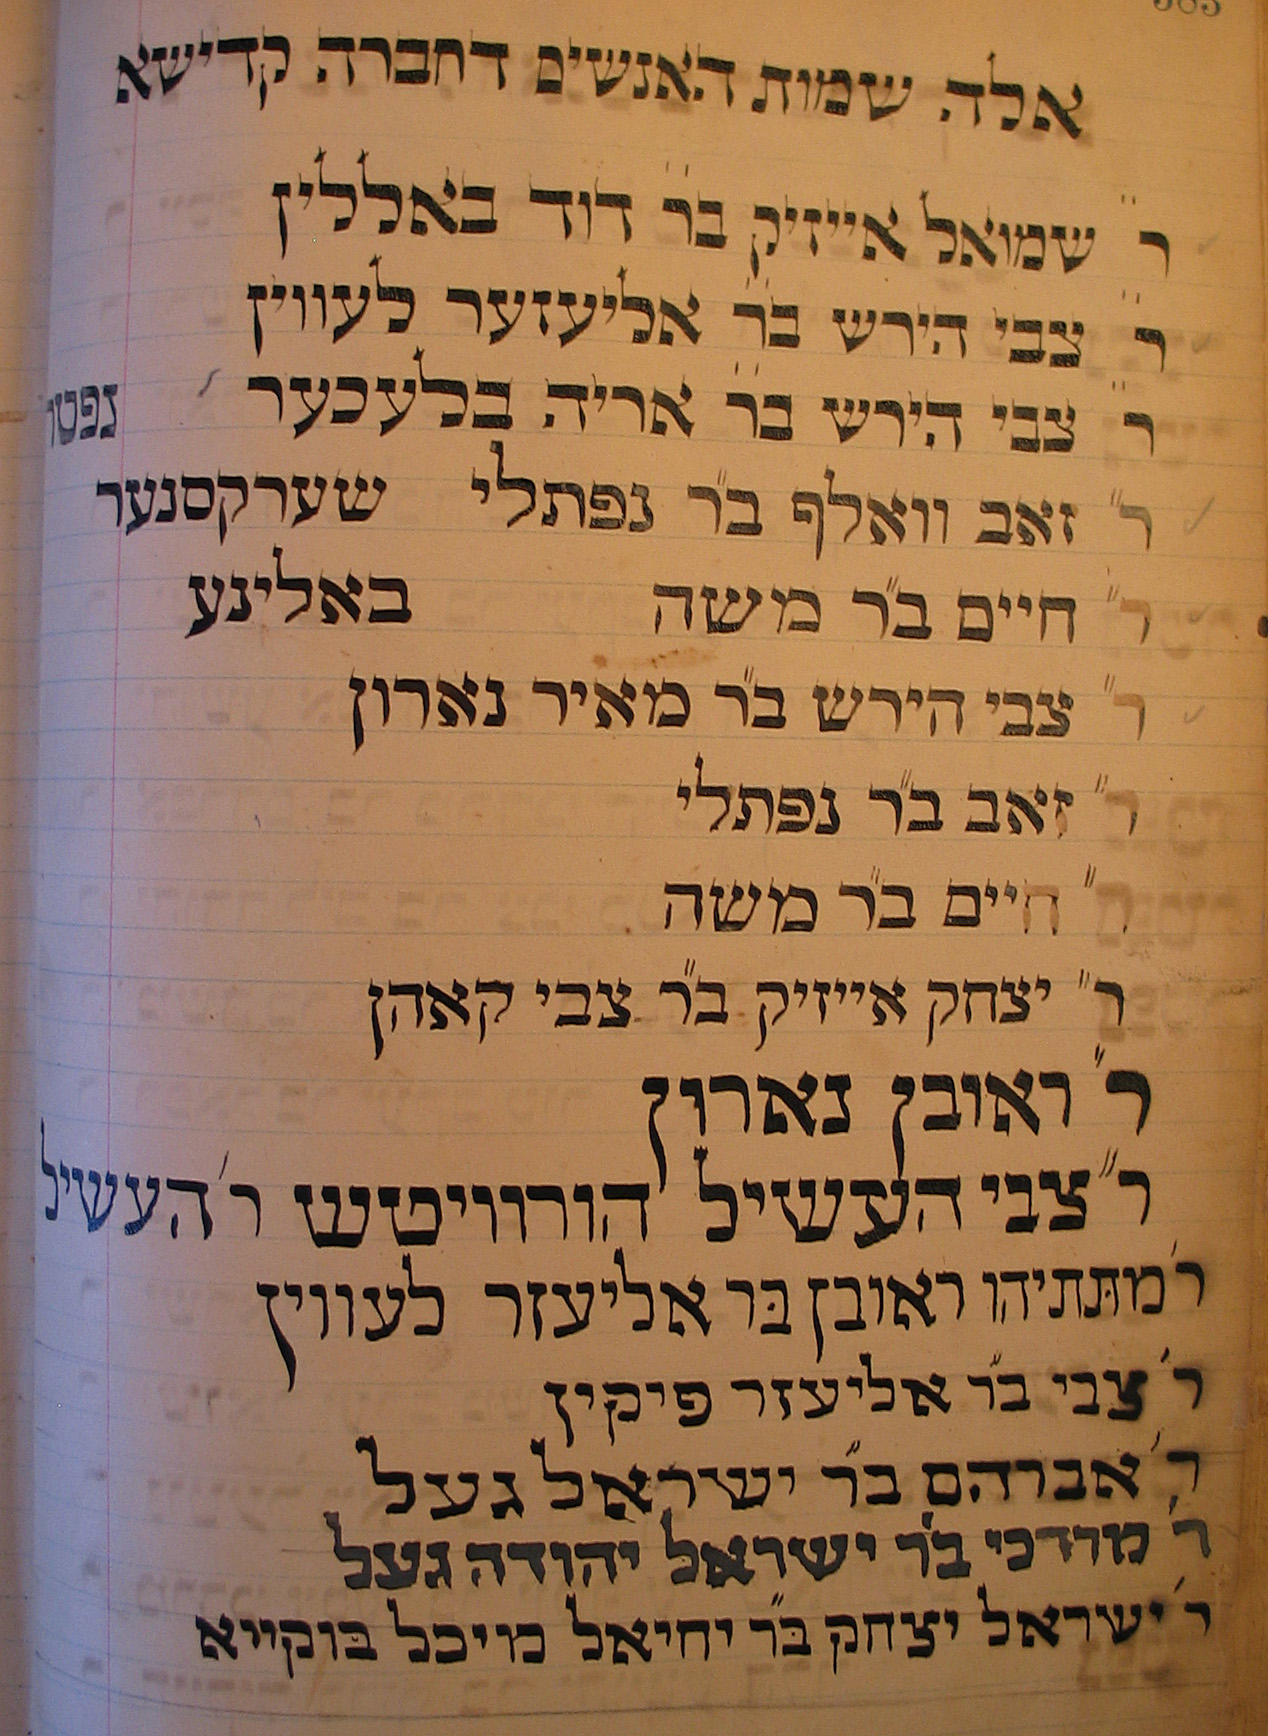 אלה שמות האנשים דחברה קדישא
ר״ שמואל אייזיק בר״ דוד באללין
ר״ צבי הירש בר״ אליעזער לעווין
ר״ צבי הירש בר״ אריה בלעכער נפטר
ר״ זאב וואלף בר״ נפתלי שערקסנער
ר״ חיים בר״ משה באלינע
ר״ צבי הירש בר״ מאיר נארון
ר״ זאב בר״ נפתלי
ר״ חיים בר״ משה
ר״ יצחק אייזיק בר״ צבי קאהן
ר״ ראובן נארון
ר״ צבי העשיל הורוויטש ר׳ העשיל
ר׳ מתתיהו ראובן בר אליעזר לעווין
ר׳ צבי בר״ אליעזר פיקין
ר׳ אברהם בר״ ישראל געל
ר׳ מרדכי בר ישראל יהודה געל
ר׳ ישראל יצחק בר״ יחיאל מיכל בוקייא